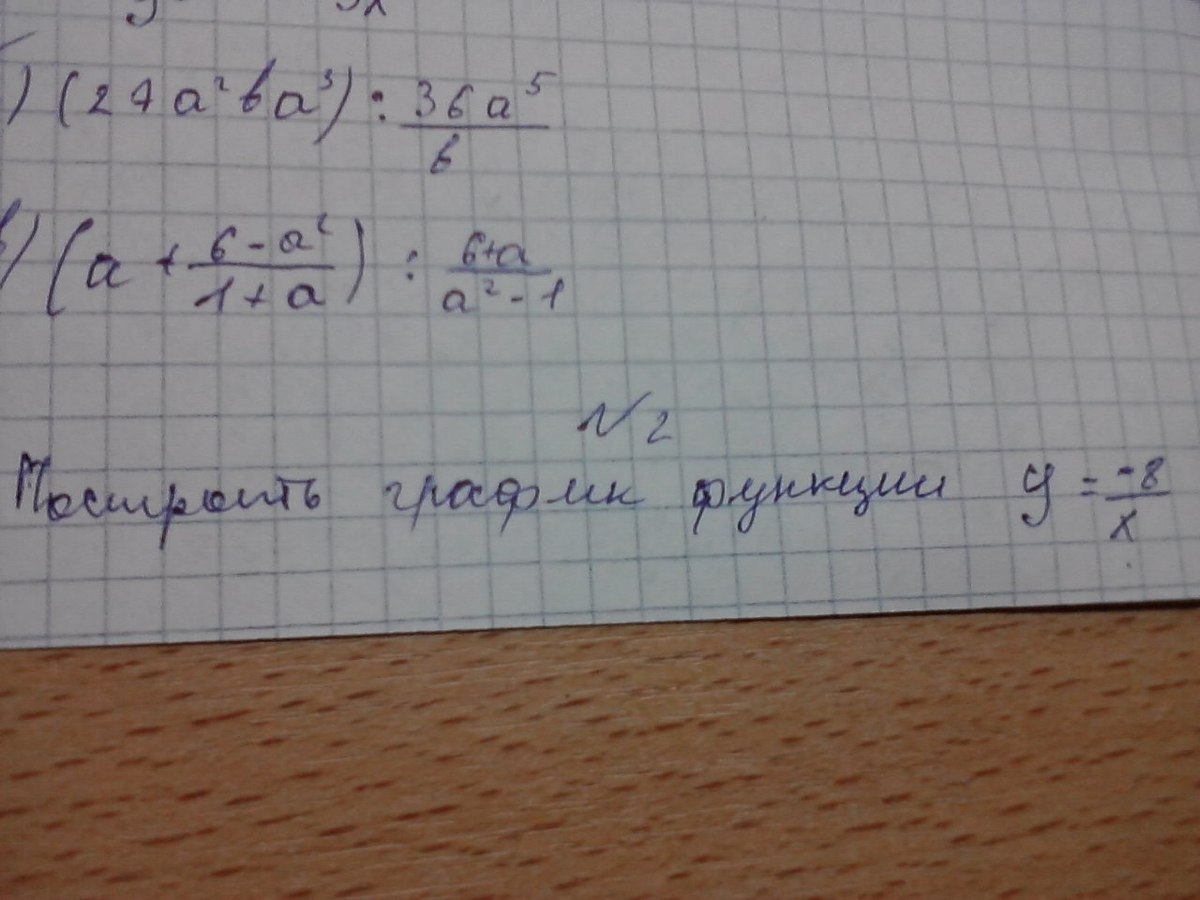 ) (27a²ba³) : 36a⁵/b
) (a + 6-a²/1+a) : 6+a/a²-1
N2
Построить график функции y = -8/x